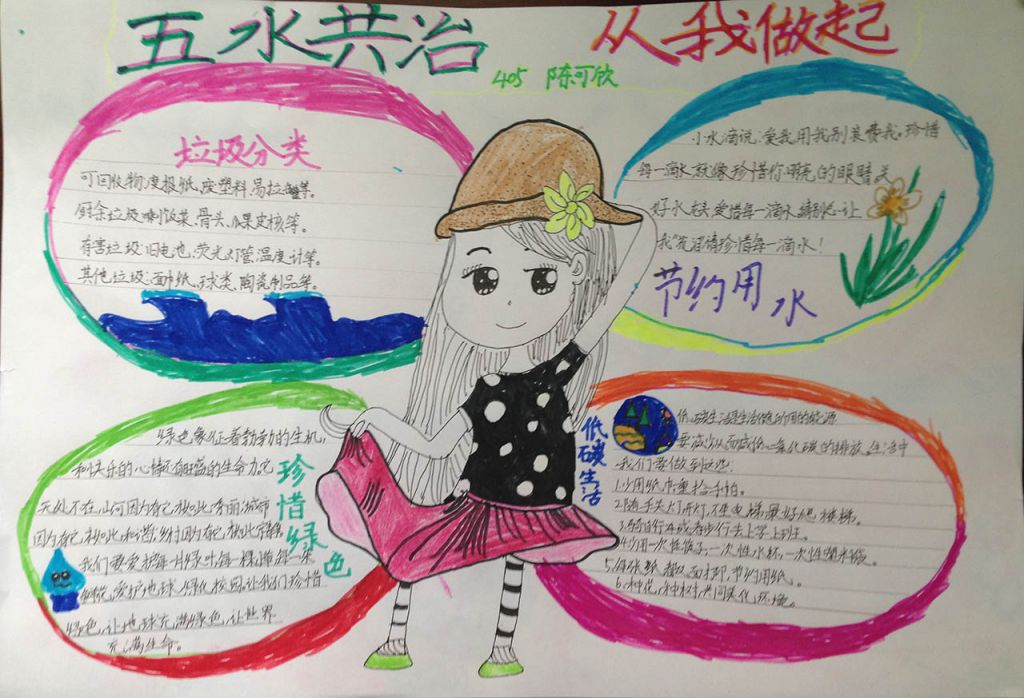 五水共治 从我做起
405 陈可欣
垃圾分类
可回收物:废报纸、废塑料、易拉罐等。
厨余垃圾:剩饭菜、骨头、瓜果皮核等。
有害垃圾:旧电池、荧光灯管、温度计等。
其他垃圾:面巾纸、球类、陶瓷制品等。
小水滴说:爱我用我别浪费我。珍惜
每一滴水就像珍惜你明亮的眼睛关
好水龙头 爱惜每一滴水
请珍惜每一滴水!
节约用水
珍惜绿色
绿色象征着勃勃的生机,
和快乐的心情还有旺盛的生命力它
无处不在,山河因为有它,秀丽,城市
因为有它,村庄因为有它
我们要爱护每一片绿叶每一棵
鲜花,爱护地球,绿化校园。让我们珍惜
绿色,让地球充满绿色,让世界
充满生命。
低碳生活
低碳生活是生活
减少 从而减低二氧化碳的排放。生活中
我们要做到这些:
1.少用纸巾,重拾手帕。
2.随手关灯
3.骑自行车或者步行去上学上班。
4.少用一次性筷子、一次性水杯、一次性塑料袋。
5.每张纸都双面打印,节约用纸。
6.种花,种树,共同美化环境。